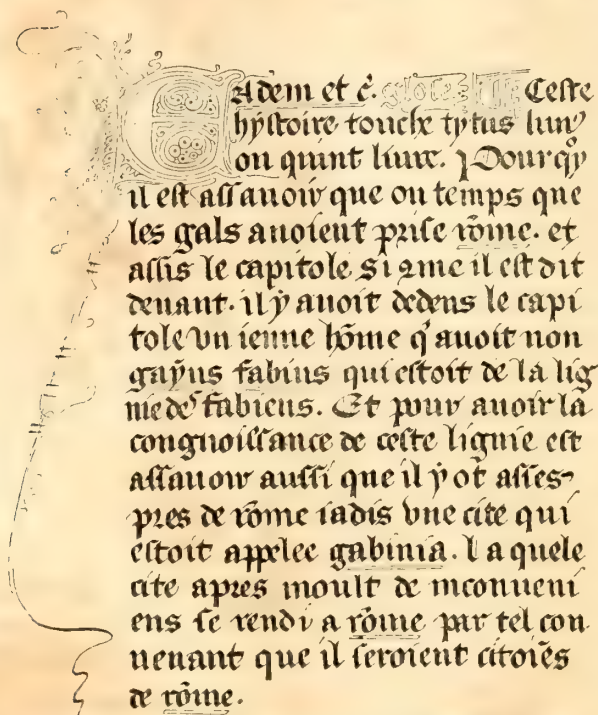 Eadem et c̃. glose. Ceste
hystoire touche tytus liui9
ou quint liure. Pourqy
il est assauoir que ou temps que
les gals auoient prise rõme. et
assis le capitole si 9me il est dit
deuant. il ẏ auoit dedens le capi
tole vn ienne hõme q' auoit non
gaẏus fabius qui estoit de la lig
niede⁹ fabiens. Et pour auoir la
congnoissance de ceste lignie est
assauoir aussi que il ẏ ot asses
pres de rõme iadis vne cite qui
estoit appelee gabinia. La quele
cite apres moult de inconueni
ens se rendi a rõme par tel con
uenant que il seroient citoiẽs
de rõme.